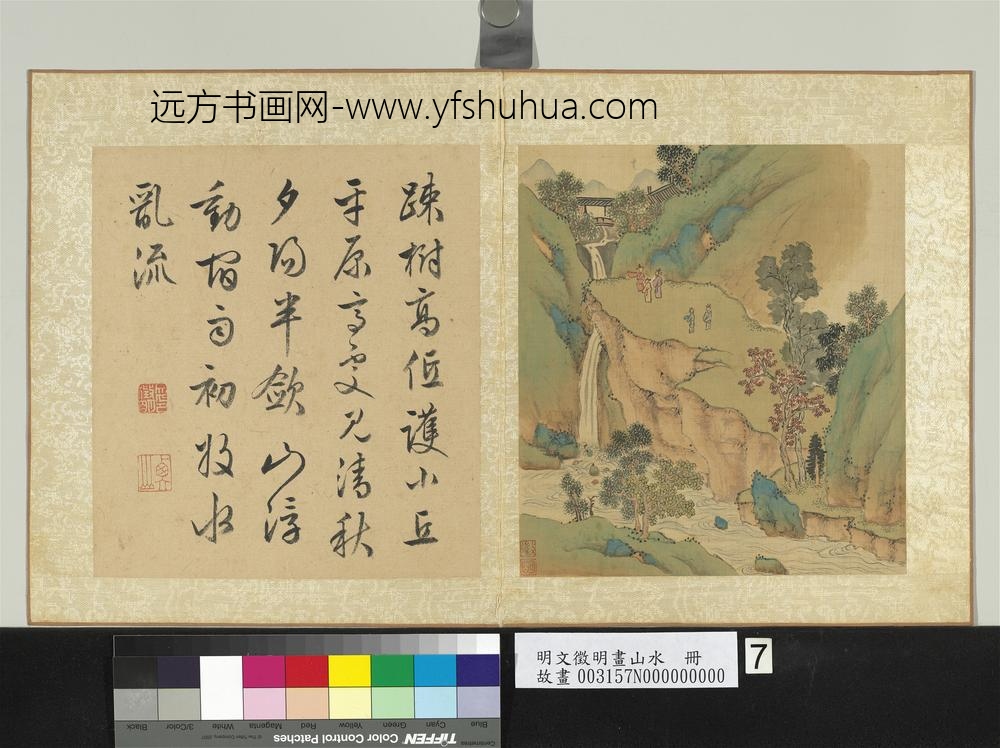 远方书画网-www.yfshuhua.com
踈樹高低護小丘
平原高處見清秋
夕陽半斂山浮
動雨初收水
亂流
明文徵明畫山水 冊
故畫 003157N000000000
7
Blue Cyan Green Yellow Red Magenta White 3/Color Black
TIFFEN Color Control Patches
© The Tiffen Company, 2007
Centimetres